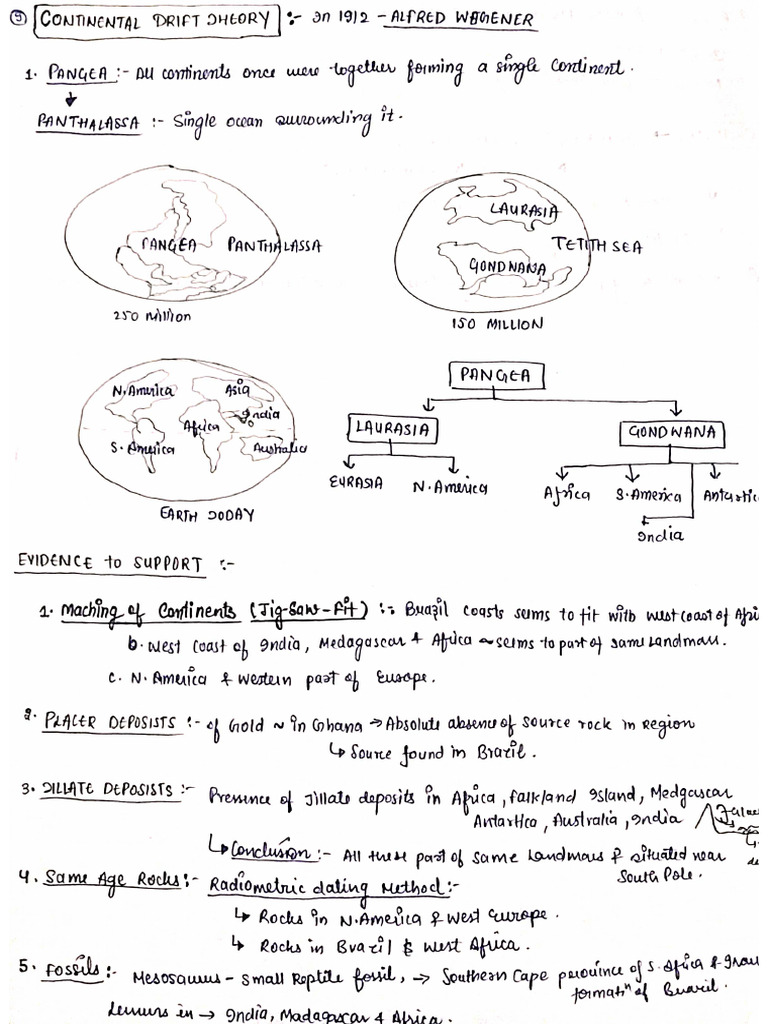 9 CONTINENTAL DRIFT THEORY :- In 1912 - ALFRED WEGENER
1. PANGEA :- All continents once were together forming a single continent.
PANTHALASSA :- Single ocean surrounding it.
PANGEA PANTHALASSA
250 million
LAURASIA
TETITH SEA
GONDWANA
150 MILLION
N. America Asia
India
Africa
S. America Australia
EARTH TODAY
PANGEA
LAURASIA GONDWANA
EURASIA N. America Africa S. America Antartic
India
EVIDENCE to SUPPORT :-
1. Maching of Continents (Jig-Saw-Fit) :- Brazil coasts sems to fit with west coast of Afri
b. West Coast of India, Medagascar & Africa ~ seems to part of same landmass.
c. N. America & Western part of Europe.
2. PLACER DEPOSISTS :- of Gold ~ in Ghana → Absolute absence of source rock in region
↳ Source found in Brazil.
3. TILLATE DEPOSISTS :- Presence of Tillate deposits in Africa, Falkland Island, Medgascar
Antartica, Australia, India
↳ Conclusion :- All these part of same landmass & situated near
South Pole.
4. Same Age Rocks :- Radiometric dating Method :-
↳ Rocks in N. America & West Europe.
↳ Rocks in Brazil & West Africa.
5. Fossils :- Mesosaurus - Small Reptile fossil, → Southern Cape perouince of S. Africa &
formatⁿ of Brazil.
Lemurs in → India, Madagascar & Africa.